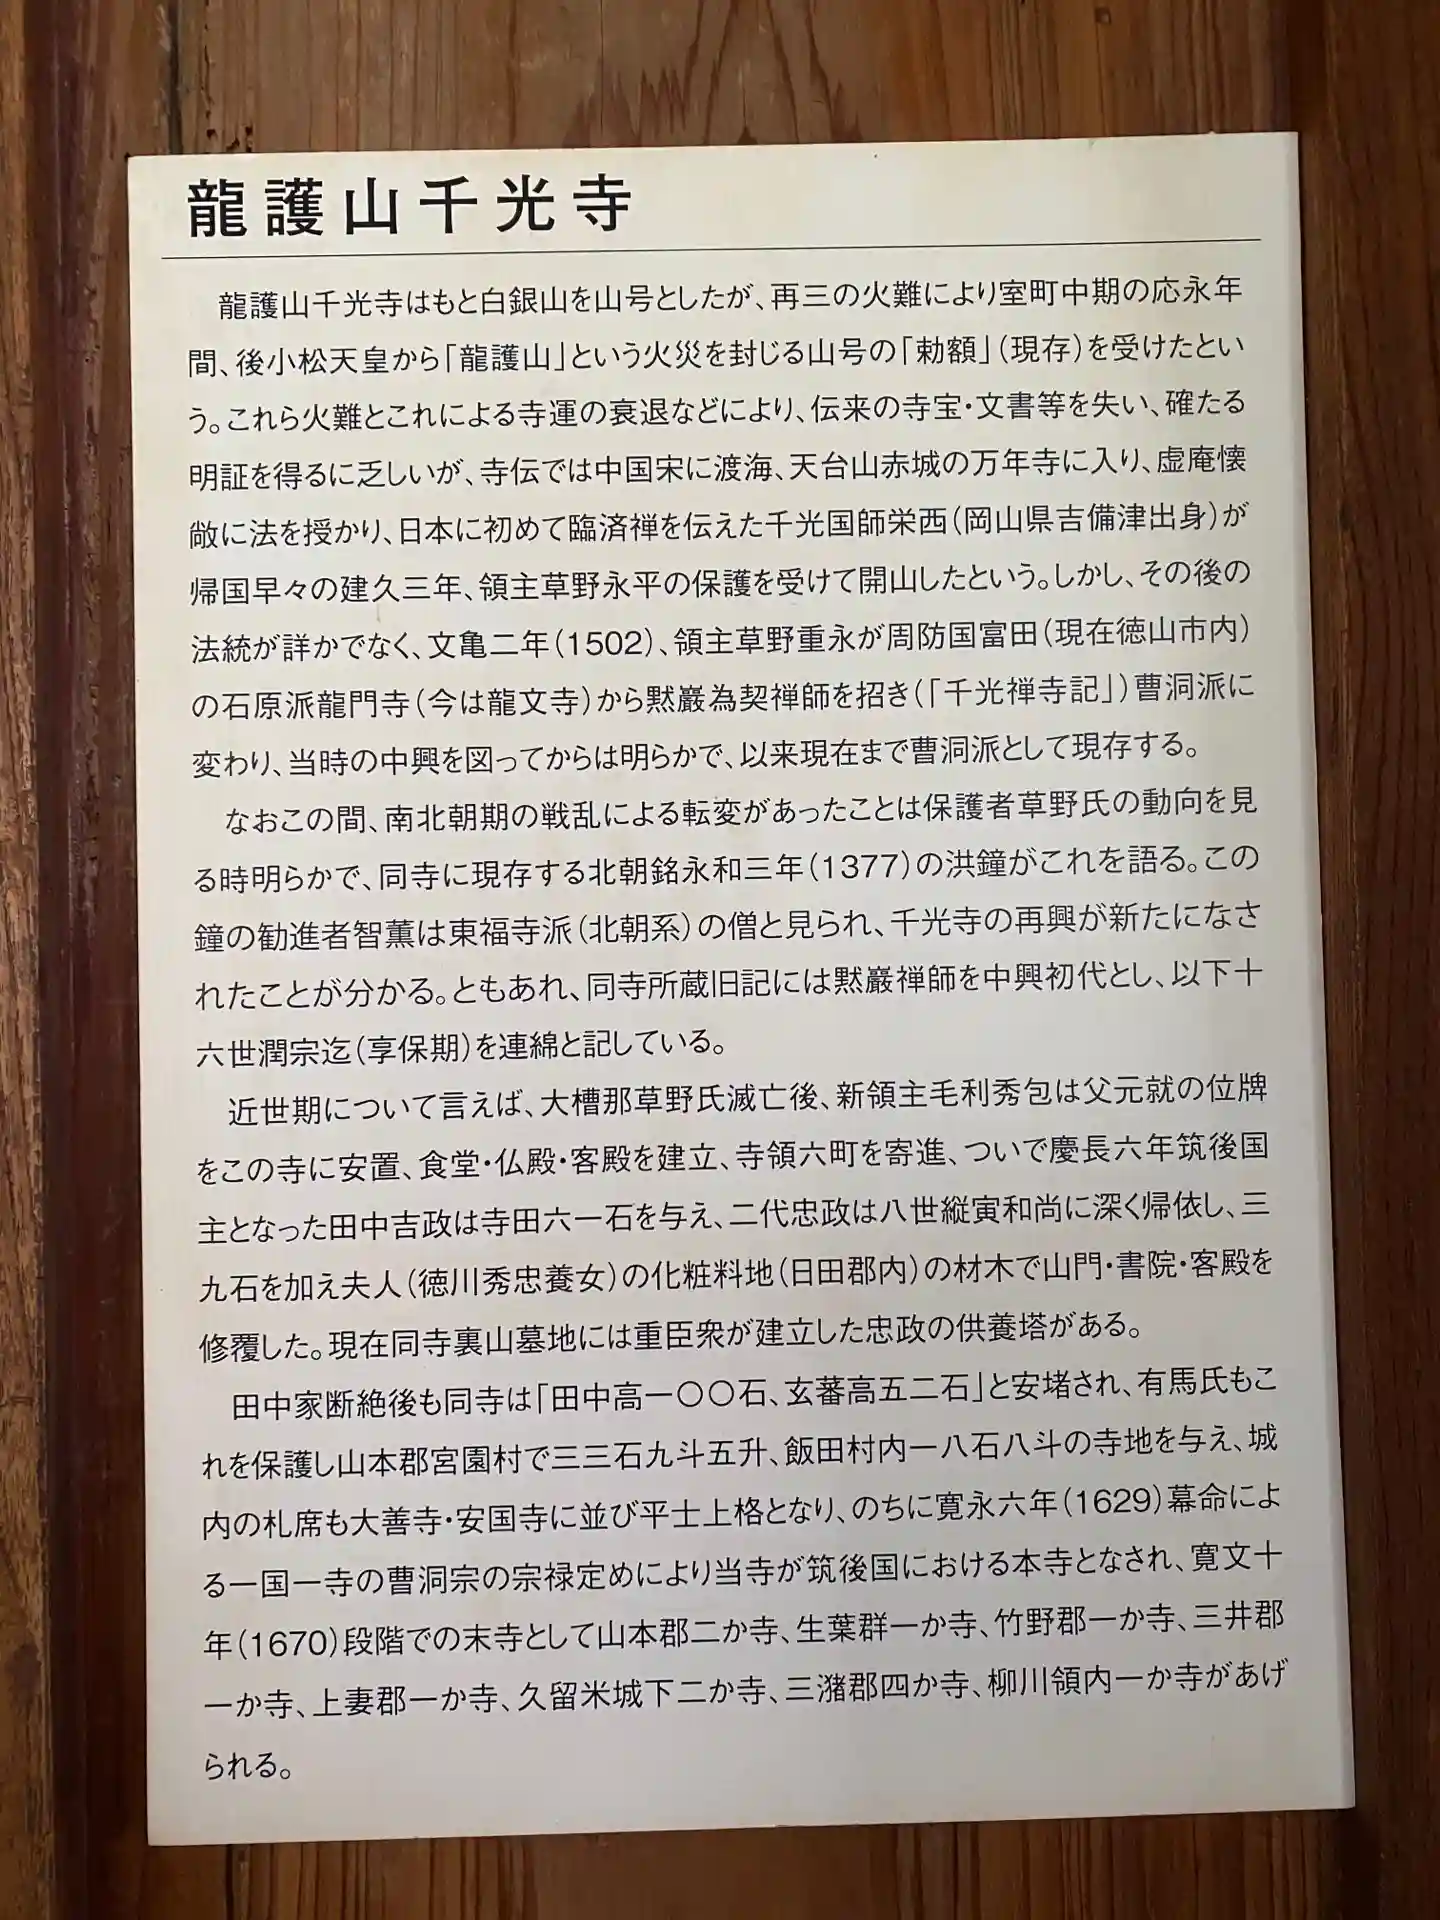 龍護山千光寺
龍護山千光寺はもと白銀山を山号としたが、再三の火難により室町中期の応永年
間、後小松天皇から「龍護山」という火災を封じる山号の「勅額」（現存）を受けたとい
う。これら火難とこれによる寺運の衰退などにより、伝来の寺宝・文書等を失い、確たる
明証を得るに乏しいが、寺伝では中国宋に渡海、天台山赤城の万年寺に入り、虚庵懐
敞に法を授かり、日本に初めて臨済禅を伝えた千光国師栄西（岡山県吉備津出身）が
帰国早々の建久三年、領主草野永平の保護を受けて開山したという。しかし、その後の
法統が詳かでなく、文亀二年（1502）、領主草野重永が周防国富田（現在徳山市内）
の石原派龍門寺（今は龍文寺）から黙巖為契禅師を招き（「千光禅寺記」）曹洞派に
変わり、当時の中興を図ってからは明らかで、以来現在まで曹洞派として現存する。
なおこの間、南北朝期の戦乱による転変があったことは保護者草野氏の動向を見
る時明らかで、同寺に現存する北朝銘永和三年（1377）の洪鐘がこれを語る。この
鐘の勧進者智薫は東福寺派（北朝系）の僧と見られ、千光寺の再興が新たになさ
れたことが分かる。ともあれ、同寺所蔵旧記には黙巖禅師を中興初代とし、以下十
六世潤宗迄（享保期）を連綿と記している。
近世期について言えば、大檀那草野氏滅亡後、新領主毛利秀包は父元就の位牌
をこの寺に安置、食堂・仏殿・客殿を建立、寺領六町を寄進、ついで慶長六年筑後国
主となった田中吉政は寺田六一石を与え、二代忠政は八世縦寅和尚に深く帰依し、三
九石を加え夫人（徳川秀忠養女）の化粧料地（日田郡内）の材木で山門・書院・客殿を
修覆した。現在同寺裏山墓地には重臣衆が建立した忠政の供養塔がある。
田中家断絶後も同寺は「田中高一〇〇石、玄蕃高五二石」と安堵され、有馬氏もこ
れを保護し山本郡宮園村で三三石九斗五升、飯田村内一八石八斗の寺地を与え、城
内の札席も大善寺・安国寺に並び平士上格となり、のちに寛永六年（1629）幕命によ
る一国一寺の曹洞宗の宗禄定めにより当寺が筑後国における本寺となされ、寛文十
年（1670）段階での末寺として山本郡二か寺、生葉群一か寺、竹野郡一か寺、三井郡
一か寺、上妻郡一か寺、久留米城下二か寺、三潴郡四か寺、柳川領内一か寺があげ
られる。